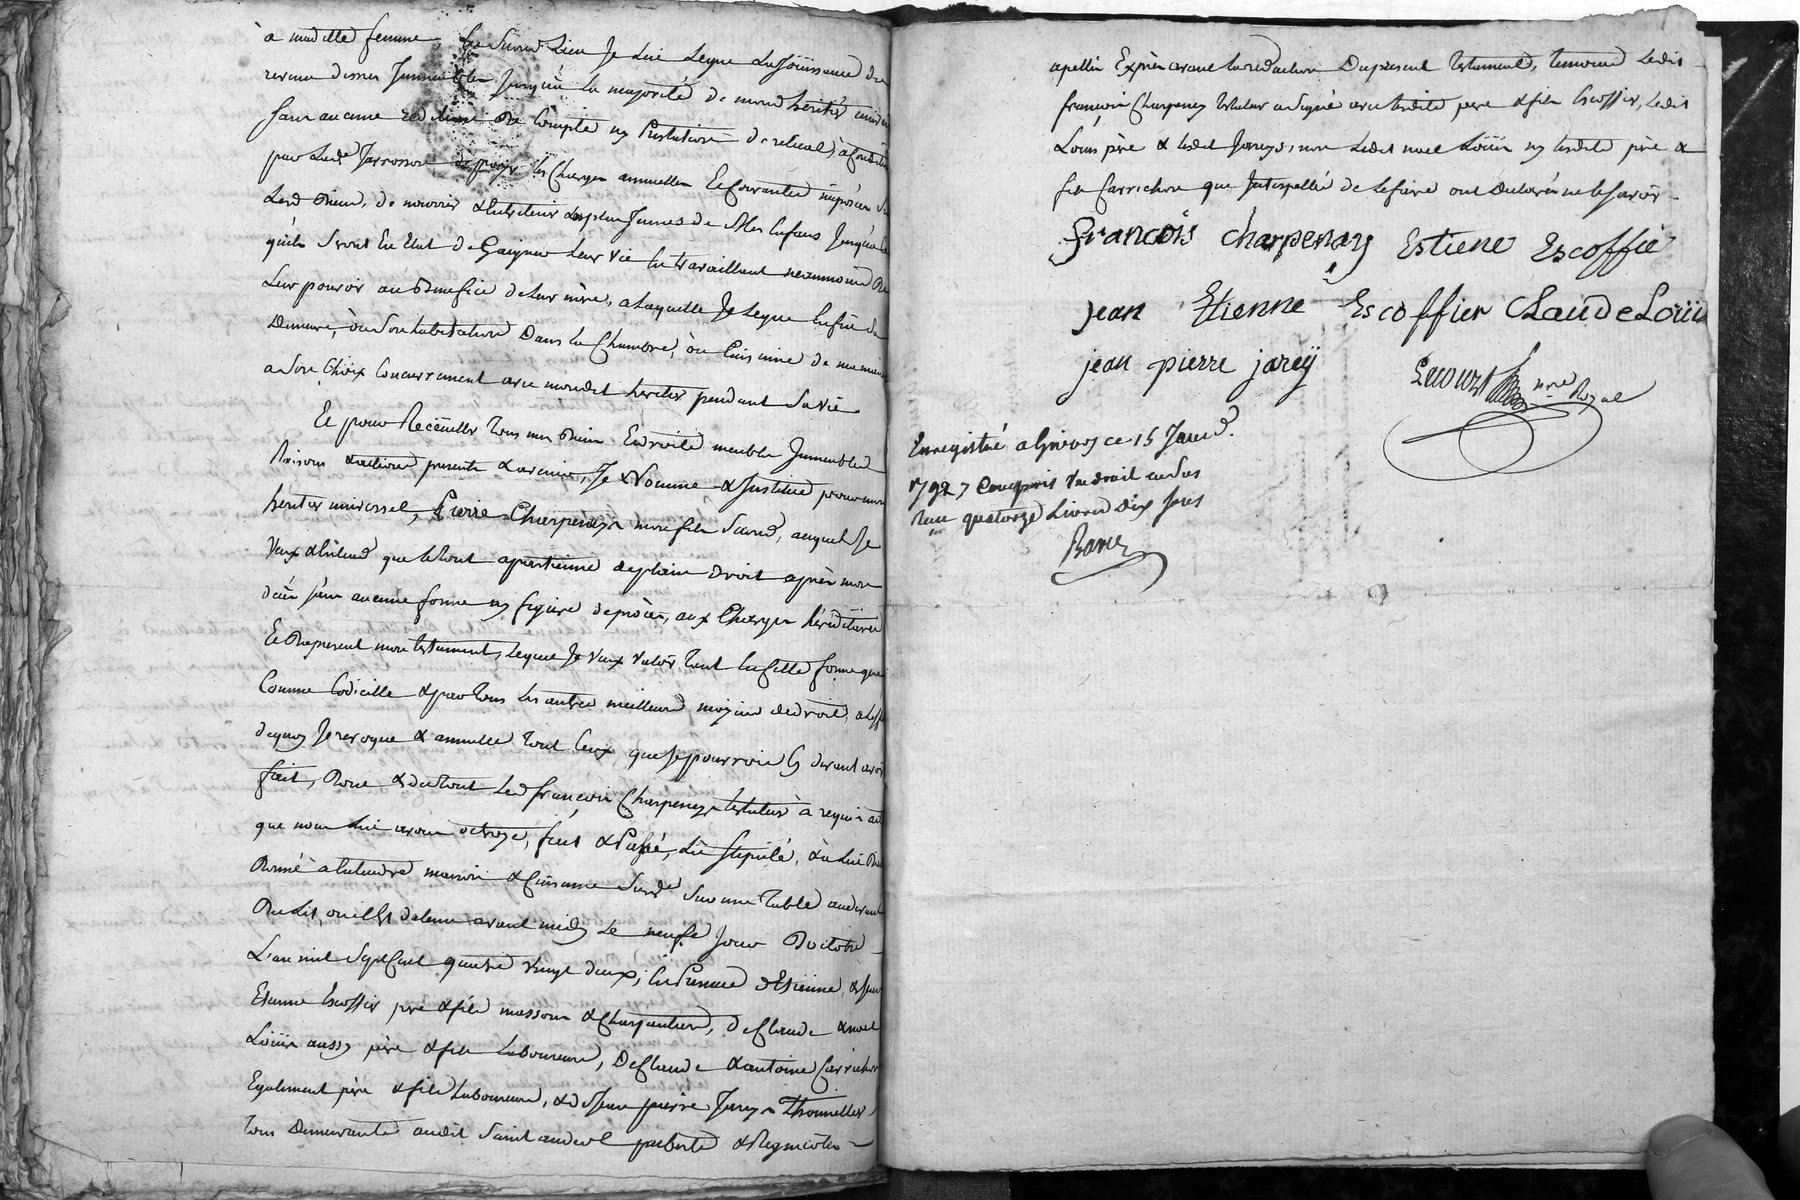 à madite femme, en second Lieu Je Lui Legue La Joüissance du
revenu de mes Immeubles Jusqu'à la majorité de mond héritier
sans aucune reddition de Compte ny Prestation de relicat, à condition
par Lade Jarrosson de payer les Charges annuelles Et Courantes imposées
Lesd Biens, de nourrir & Entretenir Les plus Jeunes de Mes Enfans Jusqu'à ce
qu'ils Seront En Etat de Gaigner Leur Vie En travaillant neanmoins de
Leur pouvoir au Benefice de Leur mère, a Laquelle Je Legue Enfin
Demeure, ou Son habitation Dans La Chambre, ou Cuisine de ma maison
a Son Choix Concurrement avec mondit heritier pendant Sa Vie
Et pour Recëuillir tous mes Biens Endroits meubles Immeubles
Raisons & actions presents & avenir, Je Nomme & Institue pour mon
heritier universel, Pierre Charpenay mon fils Second, auquel Je
Veux & Entend que le tout apartienne de plain Droit après mon
décès sans aucune forme ny figure de procès, aux Charges héréditaires
Et Du present mon testament, Lequel Je Veux Valoir tant En telle forme que
Comme Codicille & par tous Les autres meilleurs moyens de droit, a L'effet
dequoy Je revoque & annulle tout Ceux que Je pourrois Cy devant avoir
fait, Dont & du tout Led françois Charpenay testateur à requis acte
que nous Lui avons octroyé, fait & Passé, Lû Stipulé, & à Lui
Donné à Entendre maison & Cuisine Susde Sur une table audevant
Du Lit, ou il Est detenu avant midy Le neuf Jour D'octobre
L'an mil Sept Cent quatre vingt douze, En Presence d'Etienne, & Jean
Etienne Escoffier père & fils masson & Charpentier, de Claude & noel
Loüis aussy père & fils Laboureurs, De Claude & antoine Carrichon
Egalement père & fils Laboureurs, & de Jean pierre Jarey Thonnellier
tous Demeurants audit Saint andeol puberts & Regnicoles
apellés Exprès avant La redaction Du present testament, temoins Ledit
françois Charpenay testateur a Signé avec Lesdits père & fils Escoffier, Ledit
Loüis père & Ledit Jarey, non Ledit noel Loüis ny Lesdits père &
fils Carrichon que Interpellés de Le faire ont Declarés ne le Savoir
françois charpenay Estiene Escoffié
jean Etienne Escoffier Claude Loüis
jean pierre jareÿ
nre Royal
Enregistré a Givors ce 15 Janvd.
1792 y compris le droit en sus
reçu quatorze Livres dix sous